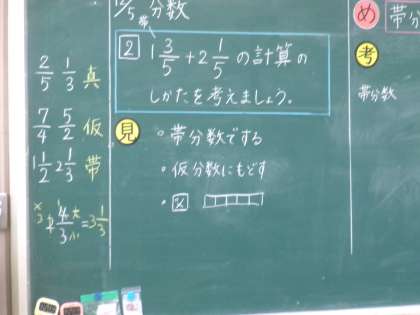 12/5 分数
帯
2 1 3/5 + 2 1/5 の計算の
しかたを考えましょう。
見
・帯分数でする
・仮分数にもどす
・図
2/5 1/3 真
7/4 5/2 仮
1 1/2 2 1/3 帯
4/3 = 3 1/3
め 帯分
考
帯分数